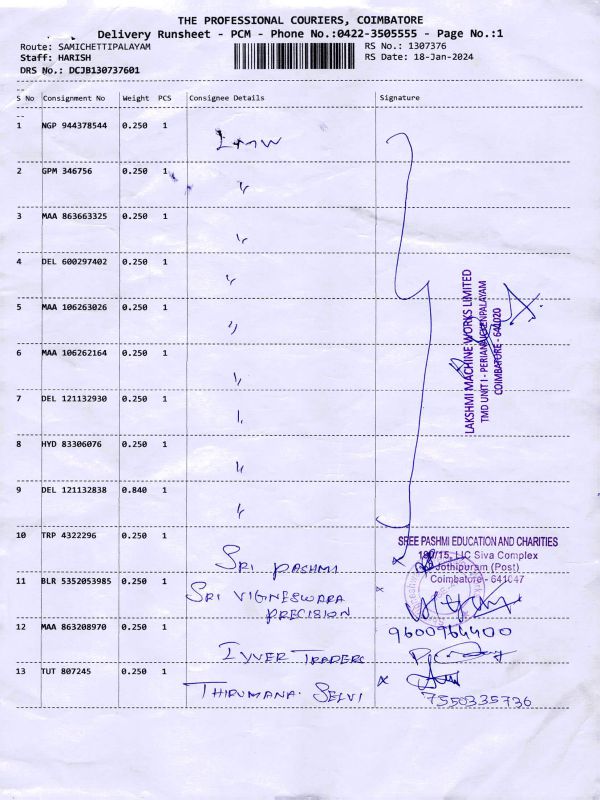 THE PROFESSIONAL COURIERS, COIMBATORE
Delivery Runsheet - PCM - Phone No.:0422-3505555 - Page No.:1
Route: SAMICHETTIPALAYAM
RS No.: 1307376
Staff: HARISH
RS Date: 18-Jan-2024
DRS No.: DCJB130737601
S No Consignment No Weight PCS Consignee Details Signature
1 NGP 944378544 0.250 1 LMW
2 GPM 346756 0.250 1 "
3 MAA 863663325 0.250 1 "
4 DEL 600297402 0.250 1 "
5 MAA 106263026 0.250 1 "
6 MAA 106262164 0.250 1 "
7 DEL 121132930 0.250 1 "
8 HYD 83306076 0.250 1 "
9 DEL 121132838 0.840 1 "
LAKSHMI MACHINE WORKS LIMITED
TMD UNIT I - PERIANAICKENPALAYAM
COIMBATORE - 641020
10 TRP 4322296 0.250 1 SRI PASHMI
SREE PASHMI EDUCATION AND CHARITIES
180/15, LIC Siva Complex
Jothipuram (Post)
Coimbatore - 641047
11 BLR 5352053985 0.250 1 SRI VIGNESWARA
PRECISION
9600964400
12 MAA 863208970 0.250 1 IYYER TRADERS
13 TUT 807245 0.250 1 THIRUMANA SELVI
7550335736